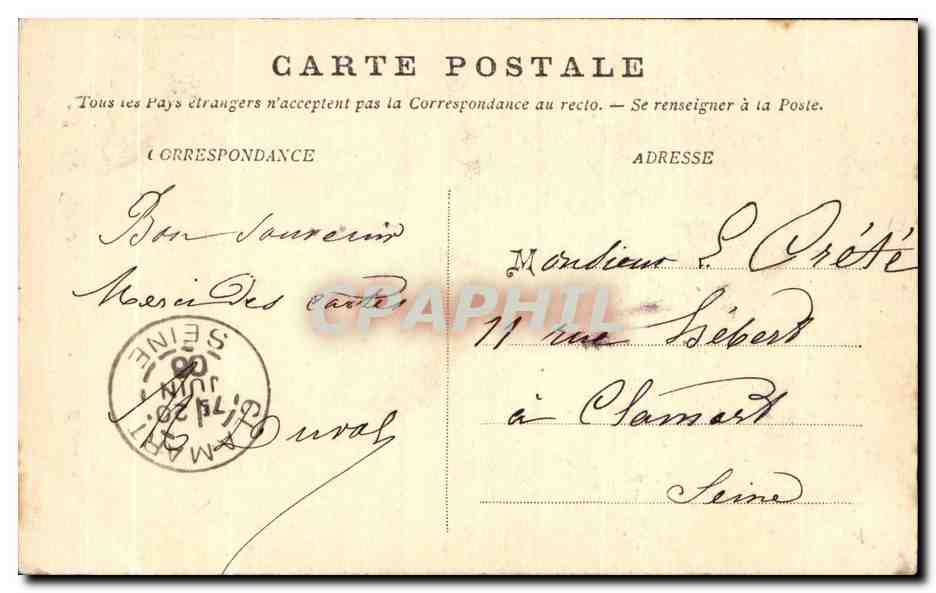 CARTE POSTALE
Tous les Pays étrangers n'acceptent pas la Correspondance au recto. — Se renseigner à la Poste.
CORRESPONDANCE
ADRESSE
Bon souvenir
Merci des cartes
Duval
Monsieur L Crété
11 rue Hébert
à Clamart
Seine
CLAMART
SEINE
20
JUIN
06
CPAPHIL